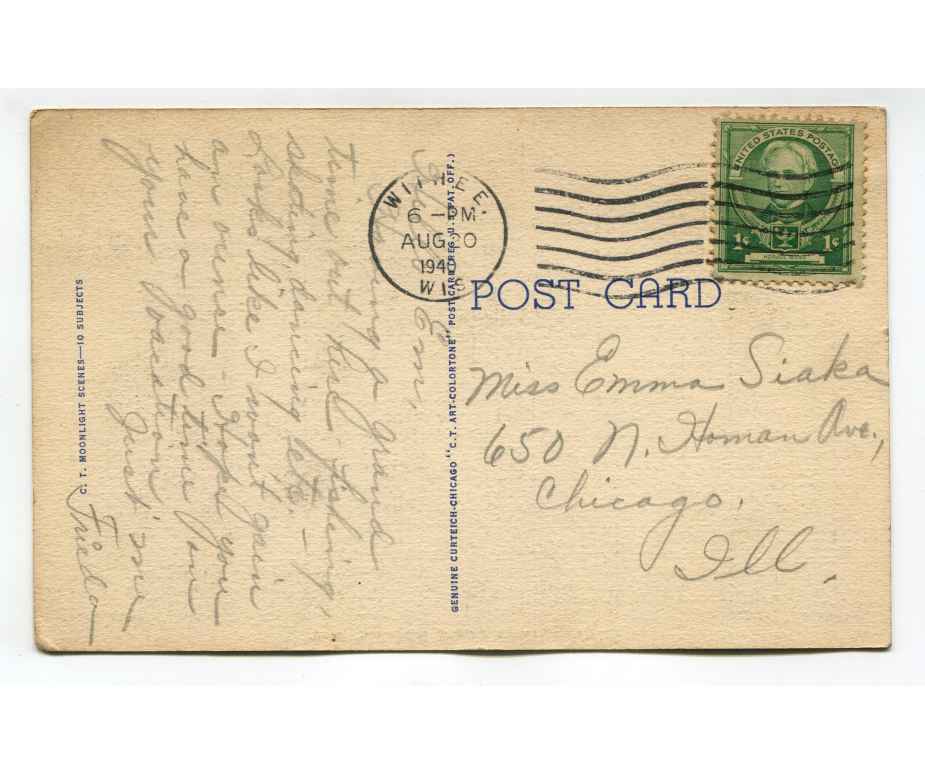 UNITED STATES POSTAGE
1¢ 1¢
HORACE MANN
WITHEE
6-PM
AUG 20
1940
WIS
POST CARD
Miss Emma Siaka
650 N. Homan Ave.,
Chicago,
Ill.
GENUINE CURTEICH-CHICAGO "C.T. ART-COLORTONE" POST CARD (REG. U.S. PAT. OFF.)
Hello Em,
Having a grand
time out Fishing,
sliding, dancing etc. —
Looks like I won't gain
an ounce - Hope you
have a good time on
your Vacation.
Just me
Frieda
C. T. MOONLIGHT SCENES—10 SUBJECTS